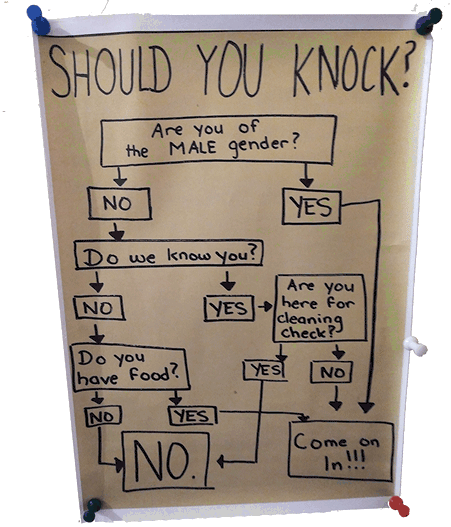 SHOULD YOU KNOCK?
Are you of
the MALE gender?
NO
YES
Do we know you?
NO
YES
Are you
here for
cleaning
check?
Do you
have food?
YES
NO
NO
YES
NO.
Come on
In!!!